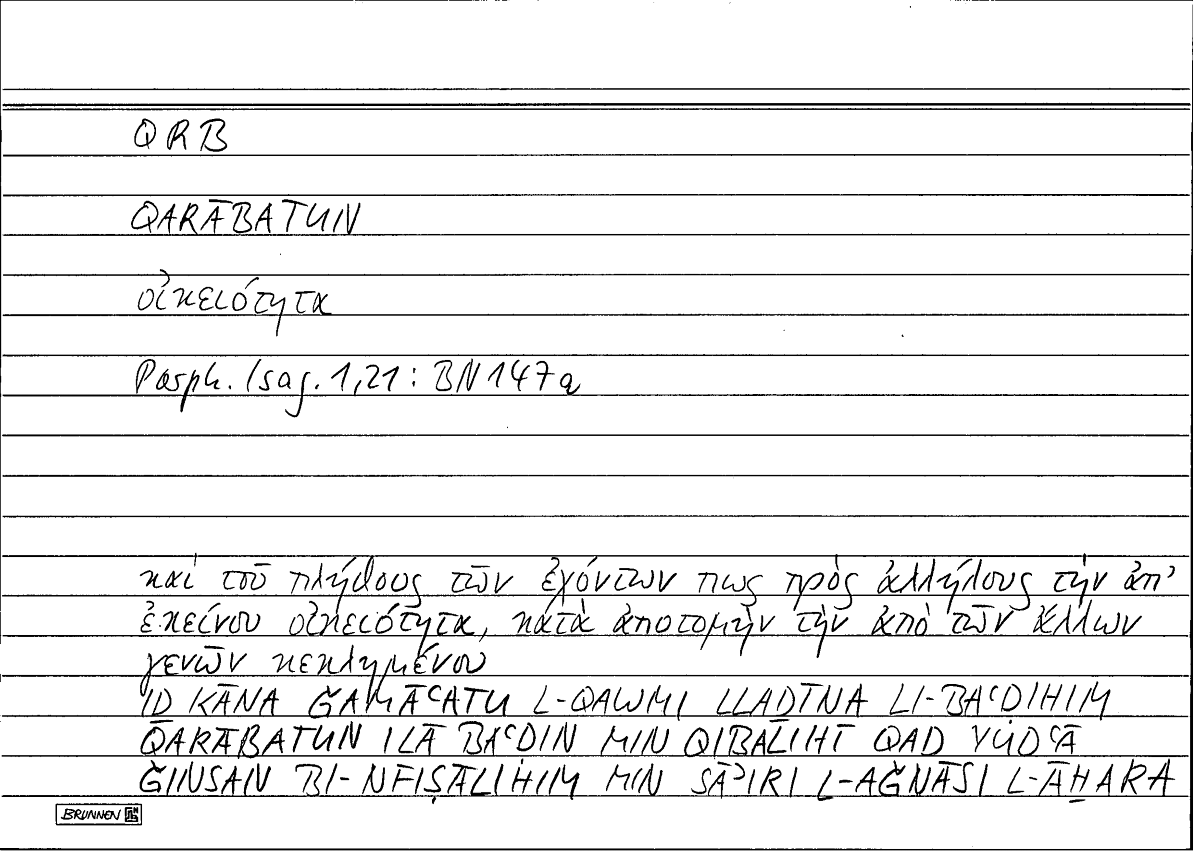 QRB
QARĀBATUN
οἰκειότητα
Porph. Isag. 1,21 : BN 147a
καὶ τοῦ πλήθους τῶν ἐχόντων πως πρὸς ἀλλήλους τὴν ἀπ'
ἐκείνου οἰκειότητα, κατὰ ἀποτομὴν τὴν ἀπὸ τῶν ἄλλων
γενῶν κεκλημένου
IḎ KĀNA ǦAMĀʿATU L-QAWMI LLAḎĪNA LI-BAʿḌIHIM
QARĀBATUN ILĀ BAʿḌIN MIN QIBALIHĪ QAD YUDʿĀ
ǦINSAN BI-NFIṢĀLIHIM MIN SĀʾIRI L-AǦNĀSI L-ĀḪARA
BRUNNEN